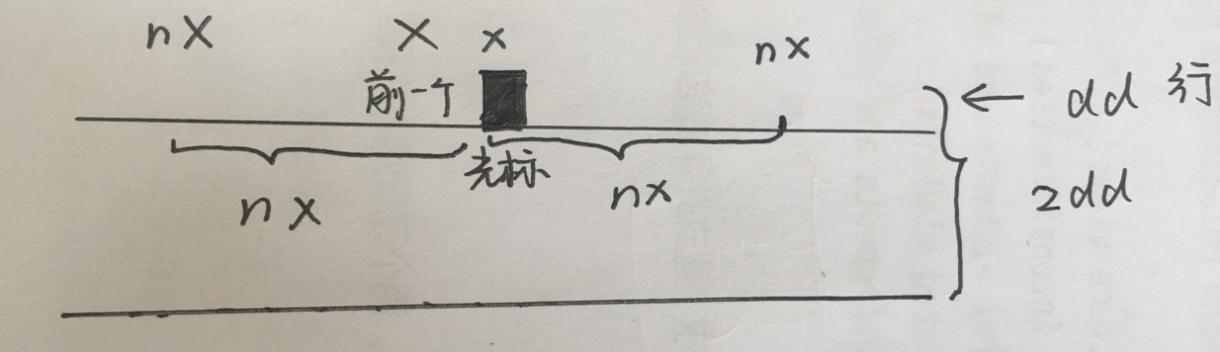 nX X x nx
前一个 ← dd 行
光标
nX nx 2dd